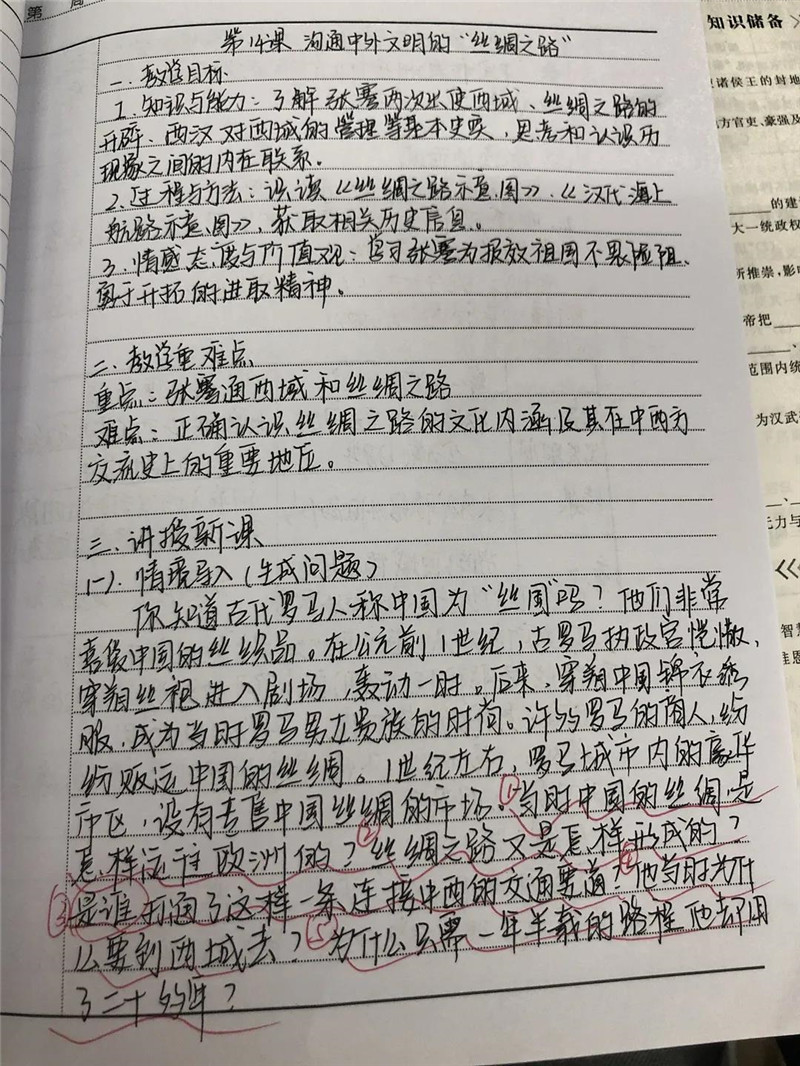 第 周
第14课 沟通中外文明的“丝绸之路”
一、教学目标
1、知识与能力：了解张骞两次出使西域、丝绸之路的
开辟、西汉对西域的管理等基本史实，思考和认识历
现象之间的内在联系。
2、过程与方法：识读《丝绸之路示意图》、《汉代海上
航路示意图》，获取相关历史信息。
3、情感态度与价值观：学习张骞为报效祖国不畏险阻、
勇于开拓的进取精神。
二、教学重难点
重点：张骞通西域和丝绸之路
难点：正确认识丝绸之路的文化内涵及其在中西方
交流史上的重要地位。
三、讲授新课
(一)、情景导入（生成问题）
你知道古代罗马人称中国为“丝国”吗？他们非常
喜爱中国的丝织品。在公元前1世纪，古罗马执政官恺撒，
穿着丝袍进入剧场，轰动一时。后来，穿着中国锦衣绣
服，成为当时罗马男女贵族的时尚。许多罗马的商人，纷
纷贩运中国的丝绸。1世纪左右，罗马城市内的豪华
市区，设有专售中国丝绸的市场。①当时中国的丝绸是
怎样运往欧洲的？②丝绸之路又是怎样形成的？
③是谁打通了这样一条连接中西的交通要道？④他当时为什
么要到西域去？⑤为什么只需一年半载的路程他却用
了二十多年？
知识储备
诸侯王的封地
方官吏、豪强及
的建
大一统政权
所推崇，影
帝把
范围内统
为汉武
力与
智慧